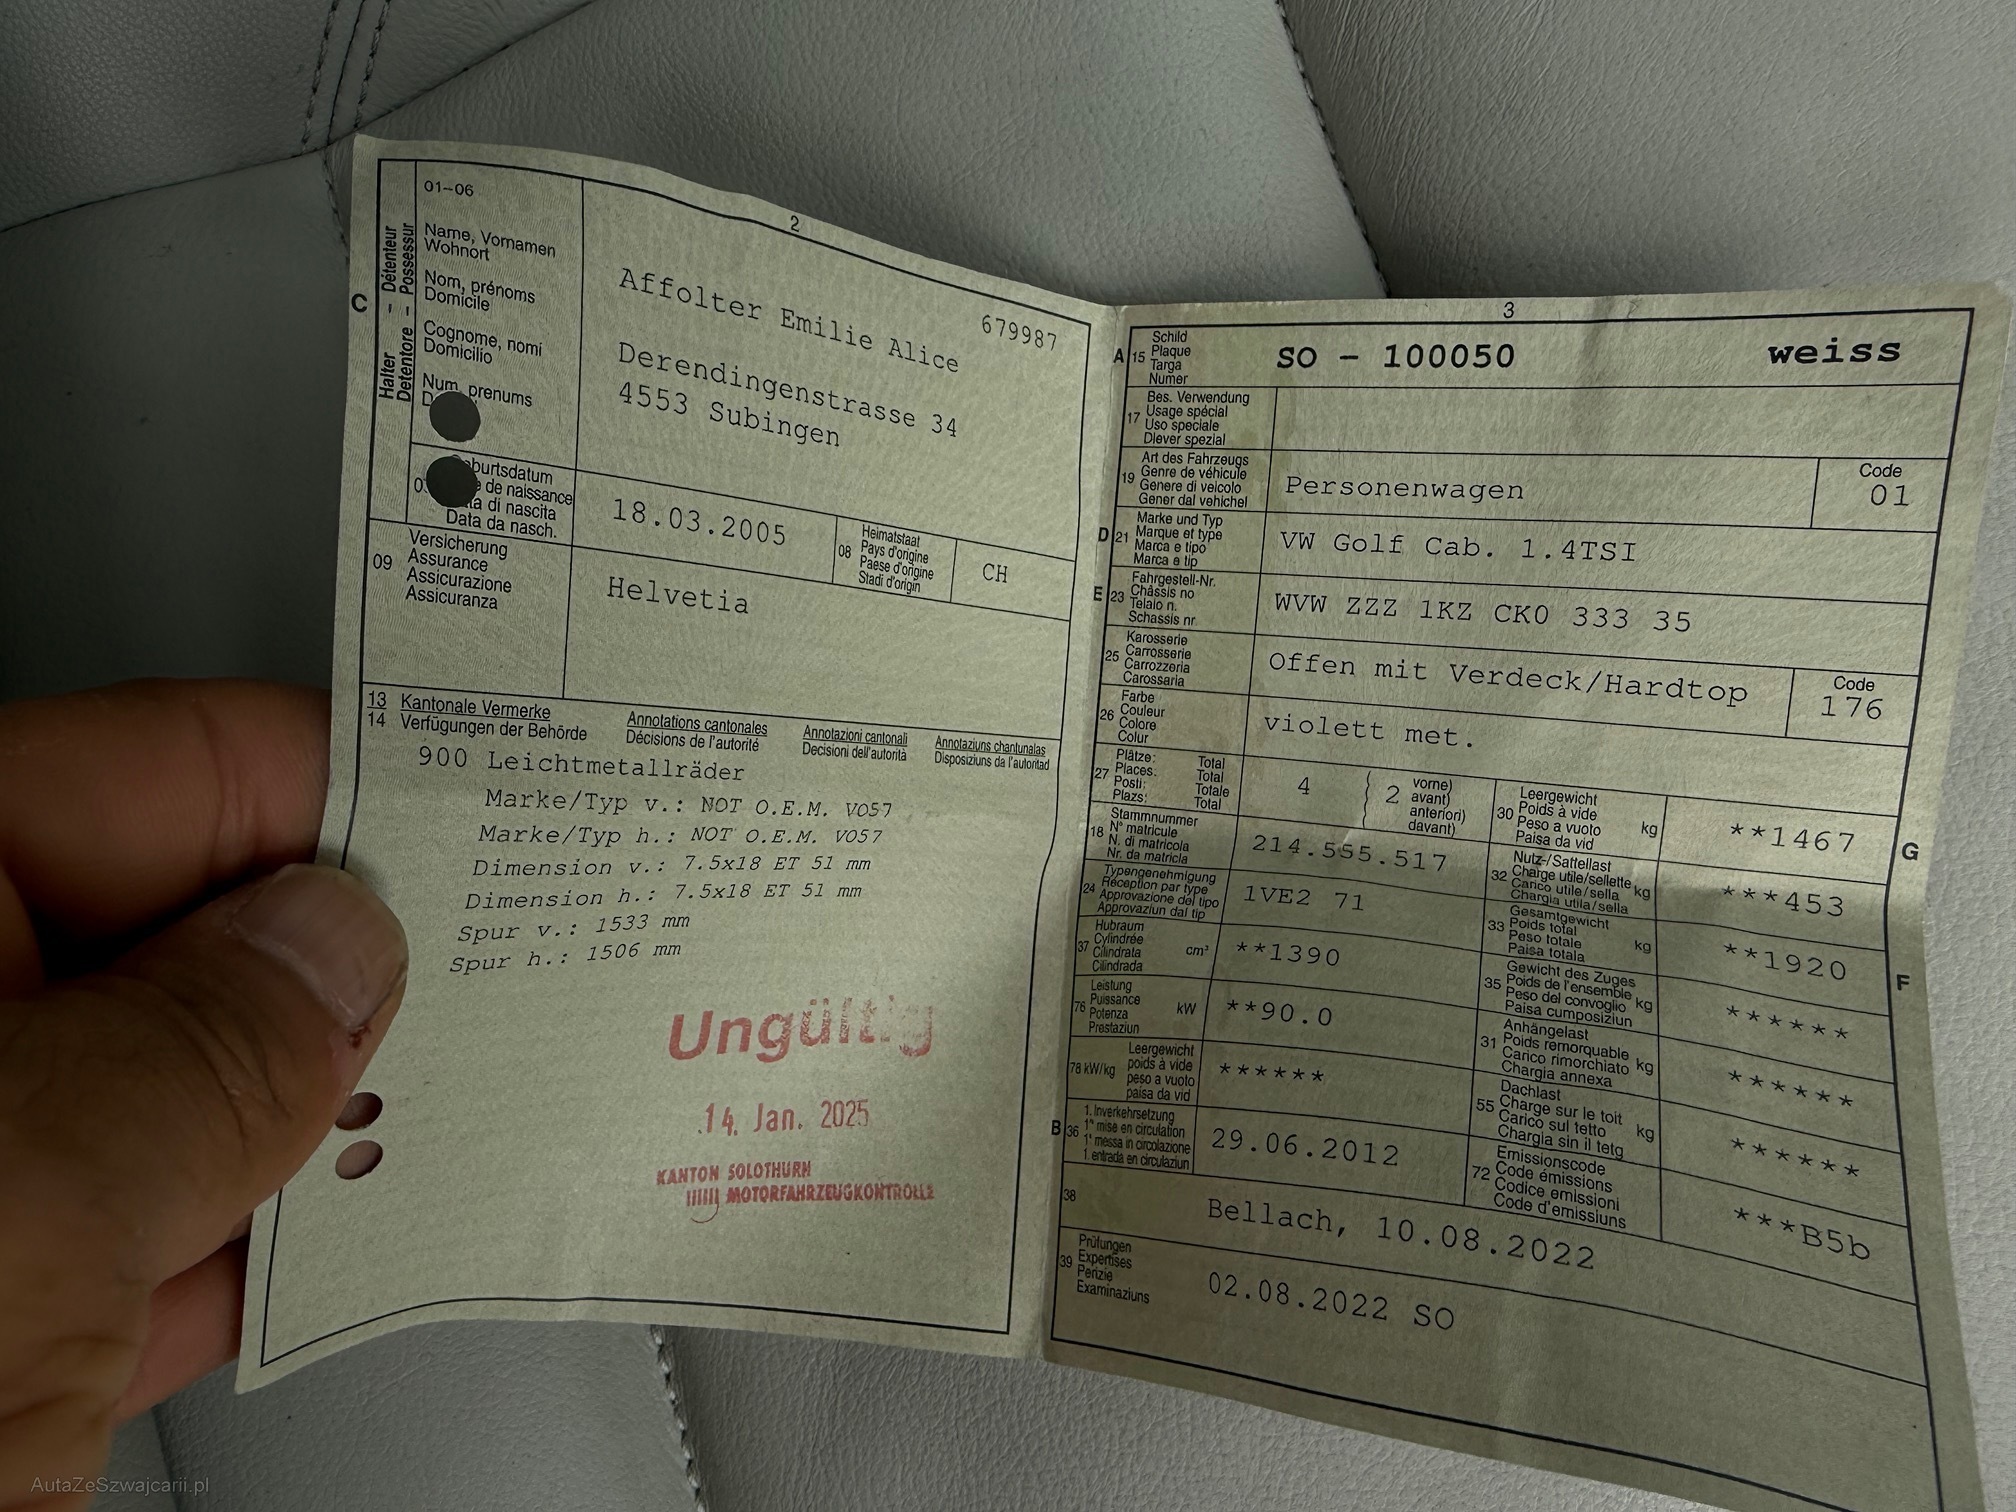 2
01-06
Halter - Détenteur
Detentore - Possessur
C
Name, Vornamen
Wohnort
Nom, prénoms
Domicile
Cognome, nomi
Domicilio
Num, prenums
Affolter Emilie Alice
679987
Derendingenstrasse 34
4553 Subingen
de naissance
di nascita
Data da nasch.
18.03.2005
08
Heimatstaat
Pays d'origine
Paese d'origine
Stadi d'origin
CH
09
Versicherung
Assurance
Assicurazione
Assicuranza
Helvetia
13 Kantonale Vermerke Annotations cantonales Annotazioni cantonali Annotaziuns chantunalas
14 Verfügungen der Behörde Décisions de l'autorité Decisioni dell'autorità Disposiziuns da l'autoritad
900 Leichtmetallräder
Marke/Typ v.: NOT O.E.M. VO57
Marke/Typ h.: NOT O.E.M. VO57
Dimension v.: 7.5x18 ET 51 mm
Dimension h.: 7.5x18 ET 51 mm
Spur v.: 1533 mm
Spur h.: 1506 mm
Ungültig
14. Jan. 2025
KANTON SOLOTHURN
MOTORFAHRZEUGKONTROLLE
3
A 15
Schild
Plaque
Targa
Numer
SO - 100050 weiss
17
Bes. Verwendung
Usage spécial
Uso speciale
Diever spezial
19
Art des Fahrzeugs
Genre de véhicule
Genere di veicolo
Gener dal vehichel
Personenwagen
Code
01
D 21
Marke und Typ
Marque et type
Marca e tipo
Marca e tip
VW Golf Cab. 1.4TSI
E 23
Fahrgestell-Nr.
Châssis no
Telaio n.
Schassis nr.
WVW ZZZ 1KZ CK0 333 35
25
Karosserie
Carrosserie
Carrozzeria
Carossaria
Offen mit Verdeck/Hardtop
Code
176
26
Farbe
Couleur
Colore
Colur
violett met.
27
Plätze: Total
Places: Total
Posti: Totale
Plazs: Total
4 ( 2
vorne)
avant)
anteriori)
davant)
30
Leergewicht
Poids à vide
Peso a vuoto
Paisa da vid
kg
**1467
G
18
Stammnummer
N° matricule
N. di matricola
Nr. da matricla
214.555.517
32
Nutz-/Sattellast
Charge utile/sellette
Carico utile/sella
Chargia utila/sella
kg
***453
24
Typengenehmigung
Réception par type
Approvazione del tipo
Approvaziun dal tip
1VE2 71
33
Gesamtgewicht
Poids total
Peso totale
Paisa totala
kg
**1920
F
37
Hubraum
Cylindrée
Cilindrata
Cilindrada
cm³
**1390
35
Gewicht des Zuges
Poids de l'ensemble
Peso del convoglio
Paisa cumposiziun
kg
******
76
Leistung
Puissance
Potenza
Prestaziun
kW
**90.0
31
Anhängelast
Poids remorquable
Carico rimorchiato
Chargia annexa
kg
******
78 kW/kg
Leergewicht
poids à vide
peso a vuoto
paisa da vid
******
55
Dachlast
Charge sur le toit
Carico sul tetto
Chargia sin il tetg
kg
******
B 36
1. Inverkehrsetzung
1re mise en circulation
1a messa in circolazione
1. entrada en circulaziun
29.06.2012
72
Emissionscode
Code émissions
Codice emissioni
Code d'emissiuns
***B5b
38
Bellach, 10.08.2022
39
Prüfungen
Expertises
Perizie
Examinaziuns
02.08.2022 SO
AutaZeSzwajcarii.pl